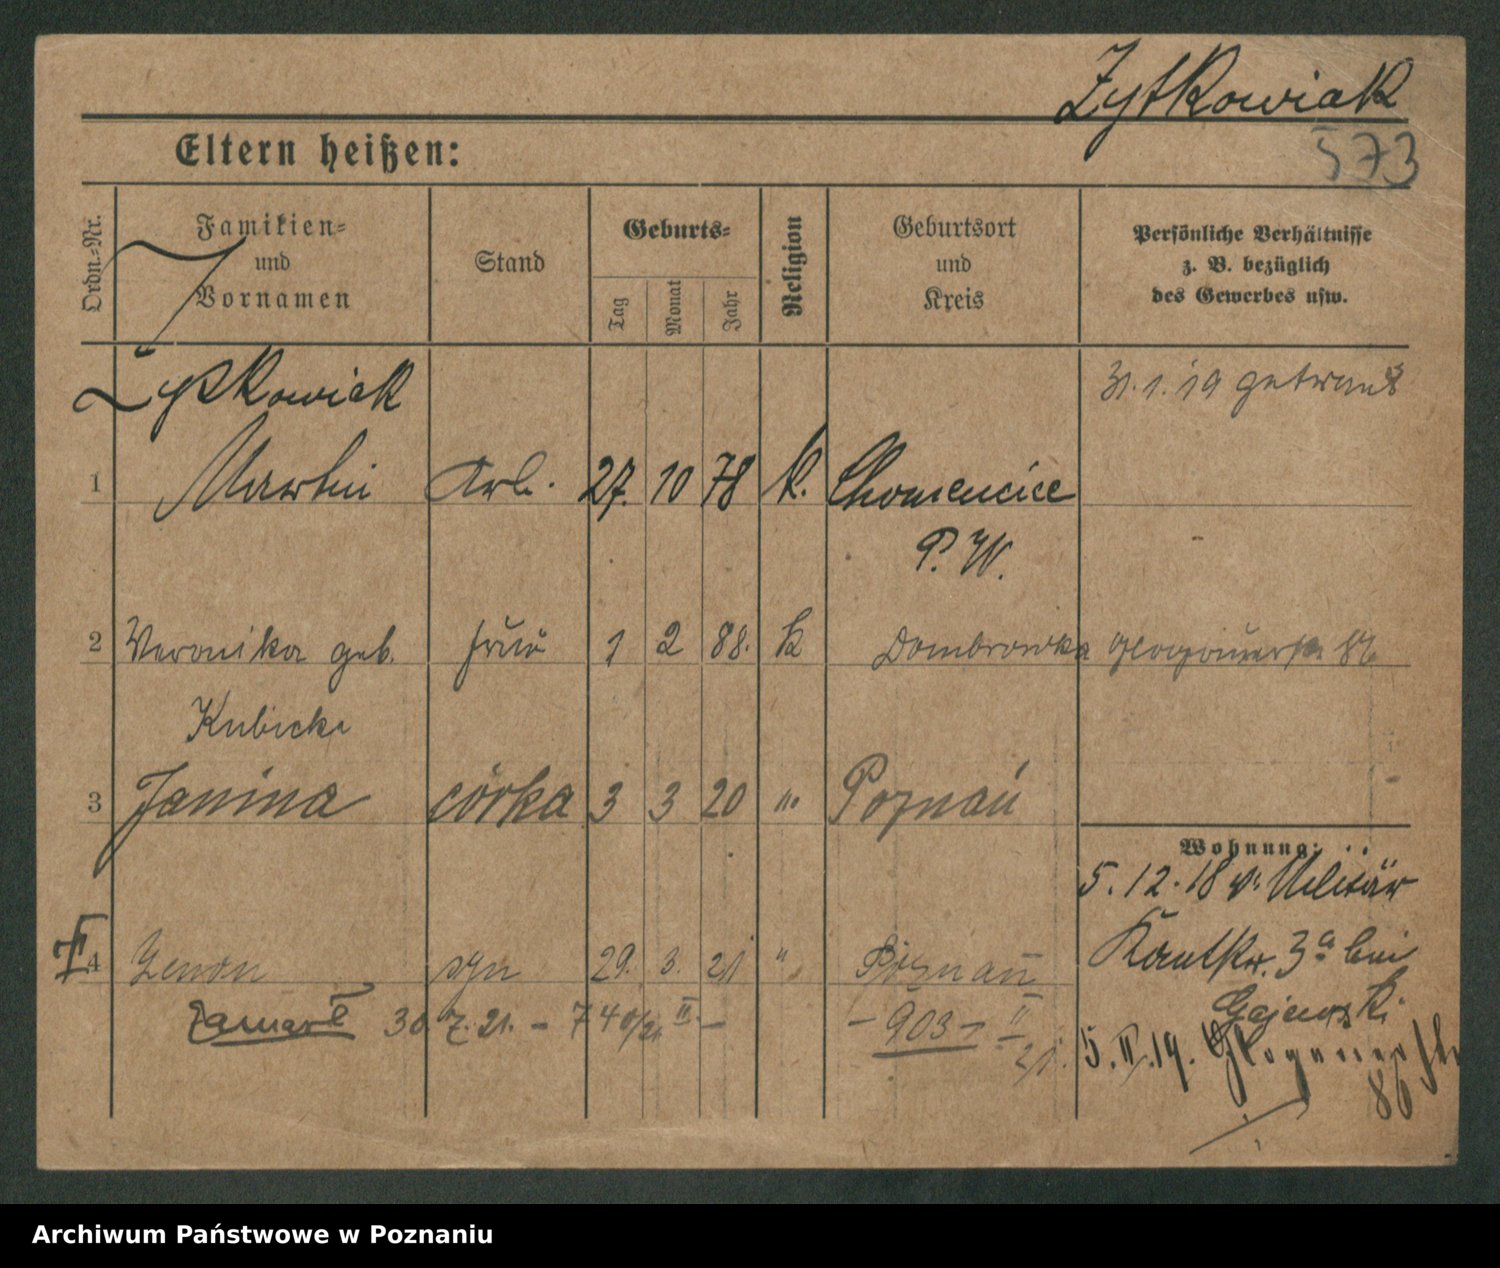 Zytkowiak
573
Eltern heißen:
Ordn.-Nr.
Familien-
und
Vornamen
Stand
Geburts-
Tag
Monat
Jahr
Religion
Geburtsort
und
Kreis
Persönliche Verhältnisse
z. B. bezüglich
des Gewerbes usw.
Żytkowiak
31.1.19 getraut
1 Martin Arb. 27. 10 78 k. Chomencice
P. W.
2 Veronika geb. frau 1 2 88. k Dombrowka Glogauerstr. 86
Kubicka
3 Janina córka 3 3 20 " Poznań
Wohnung:
5.12.18 v. Militär
Kantstr. 3a bei
Gajewski
4 Zenon syn 29. 3. 21 " Poznań
zamarł 30.7.21. – 740/21 II – – 903 – II
21.
5.II.19. Glogauerstr.
86
Archiwum Państwowe w Poznaniu